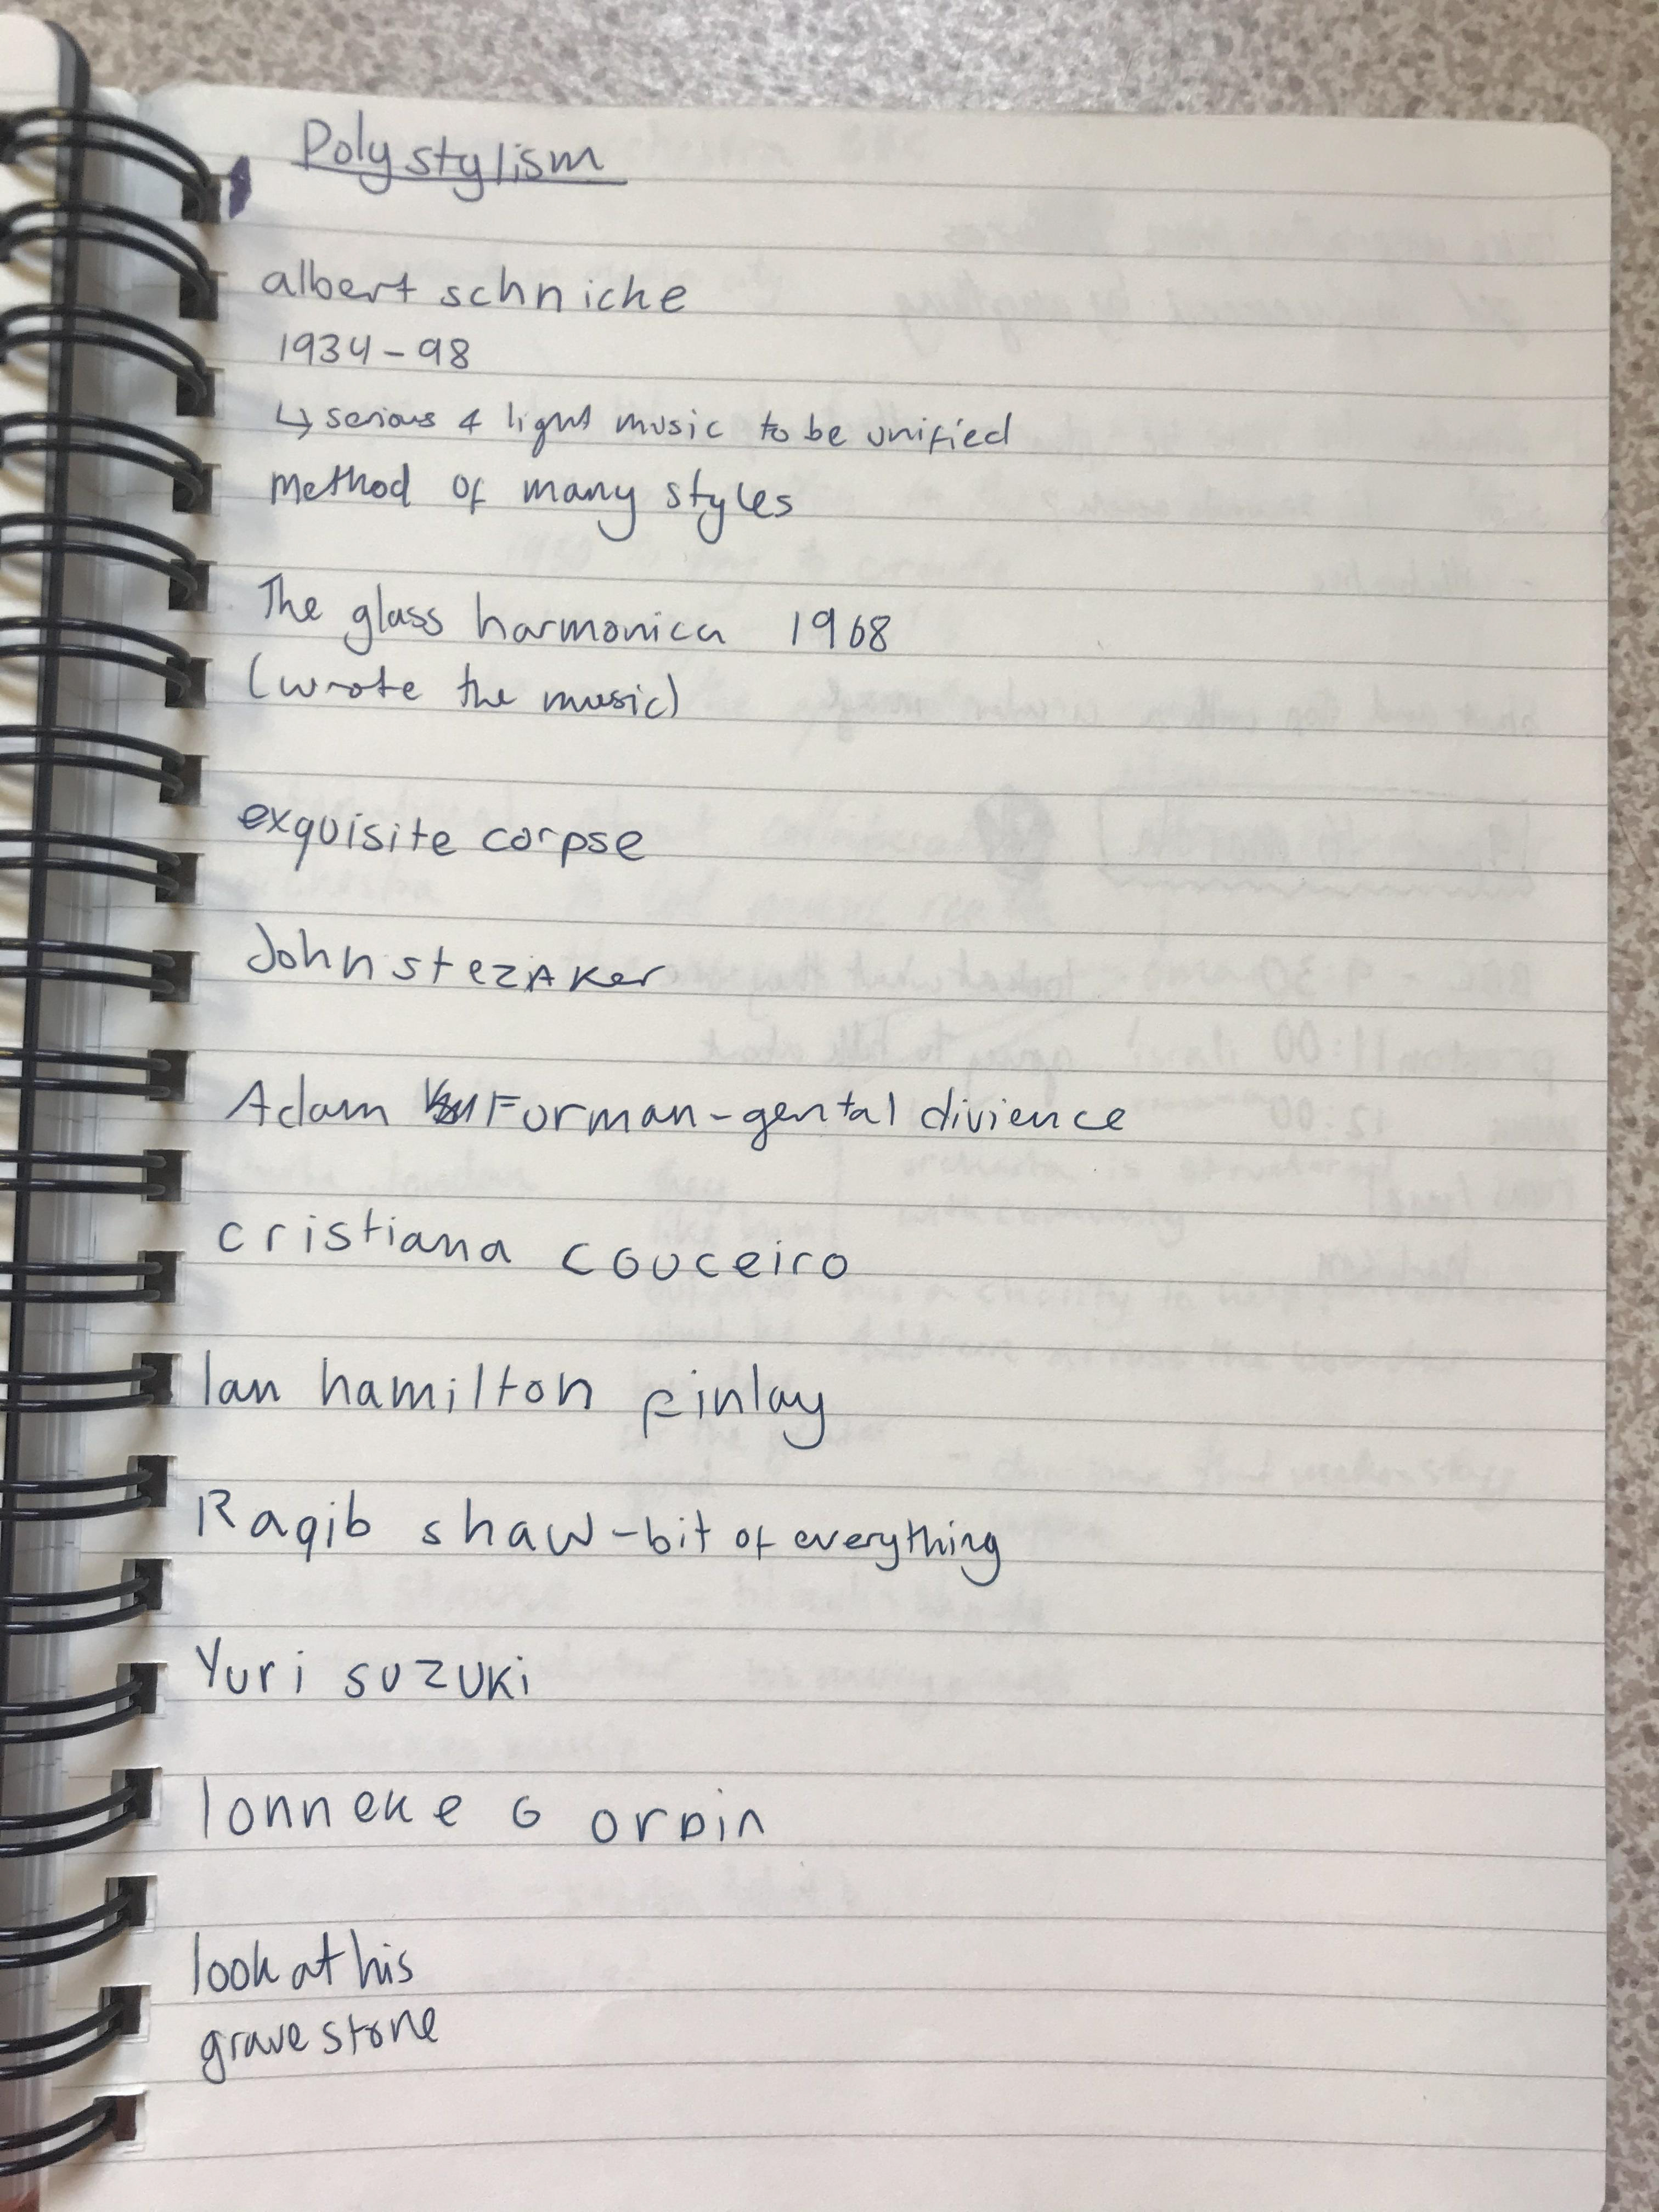 Polystylism
albert schniche
1934-98
↳ serious & light music to be unified
method of many styles
The glass harmonica 1968
(wrote the music)
exquisite corpse
John stezAKer
Adam Furman-gental divience
cristiana couceiro
Ian hamilton finlay
Raqib shaw-bit of everything
Yuri suzuki
lonneke G orDin
look at his
grave stone